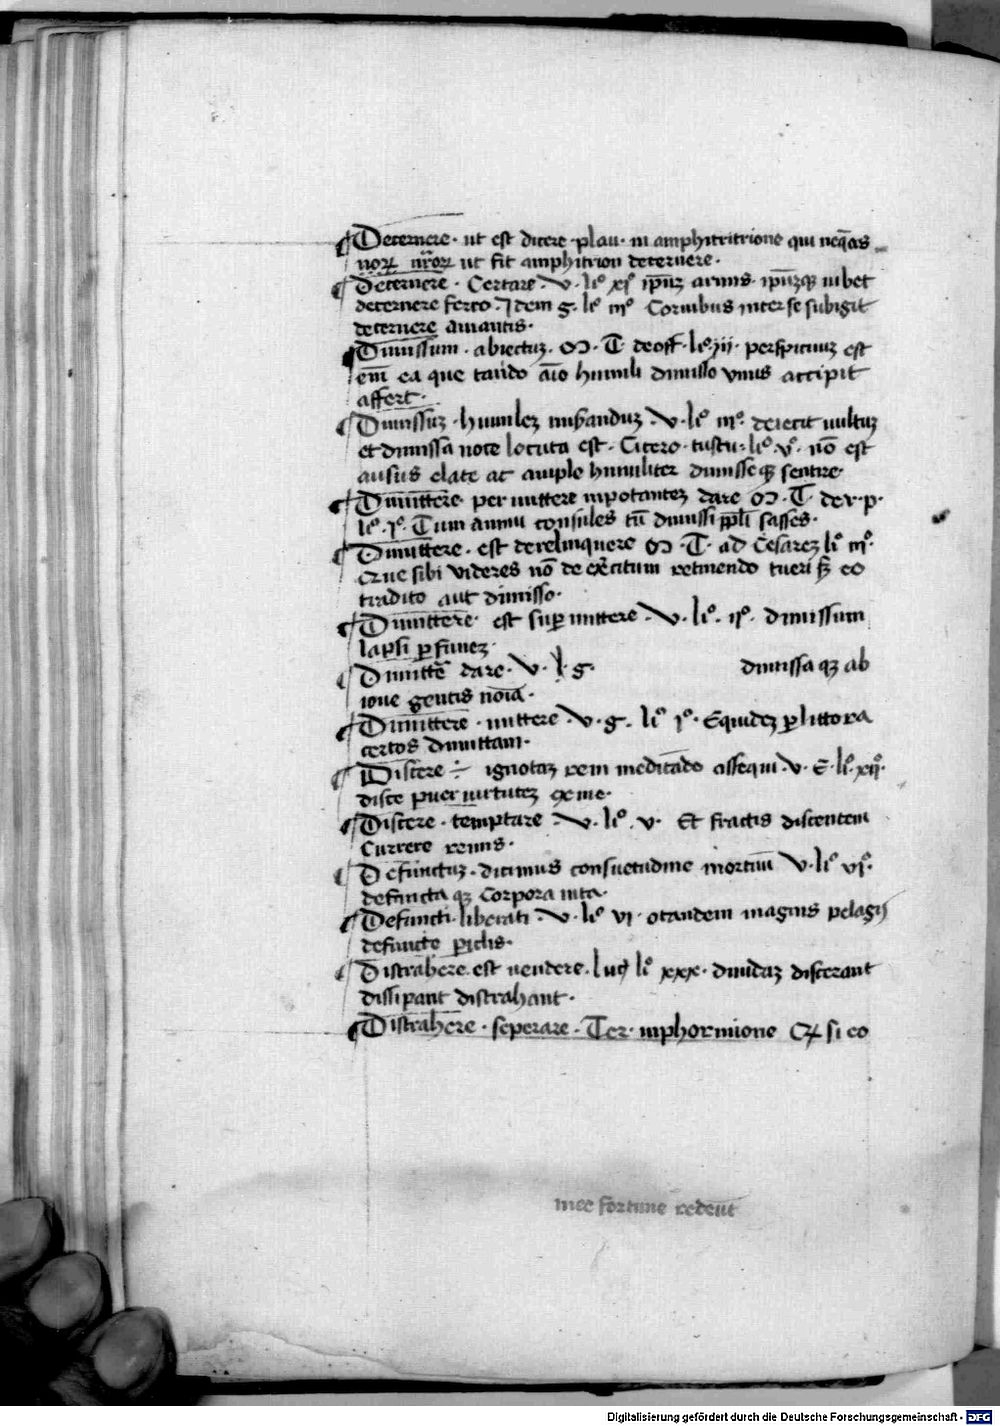 Decernere · ut est dicere · plau · in amphitritrione qui neq̄as
noꝝ nr̄oꝝ ut fit amphitrion decernere ·
Decernere · Certare · v · liº xjº ip̄ūꝫ armis · ip̄ūꝫqꝫ iubet
decernere ferro · Idem g · liº iijº Cornibus inter se subigit
decernere amantis ·
Dimissum · abiectuꝫ · M · T · de off · liº · iii · perspicuuꝫ est
em̄ ea que tando aīo humili dimisso vnus accipit
affert ·
Dimissuꝫ · humileꝫ · v · liº iijº · deiecit uultuꝫ
et dimissa uoce locuta est · Cicero · tustu · liº · vº · nō est
ausus elate ac ample humiliter dimisse qꝫ sentire
Dimittere · per mittere inpotanteꝫ dare M · T · de r · p ·
liº · jº · Tum animu consules tū dimissi pp̄li fasses ·
Dimittere · est derelinquere M · T · ad Cesareꝫ li iijº ·
sibi videres nō de exercitum retinendo tueri sꝫ eo
tradito aut dimisso ·
Dimittere · est supermittere · v · liº · ijº · dimissum
lapsi ꝑ funeꝫ ·
Dimittē dare · v · l · g · dimissa qꝫ ab
ioue gentis noīa ·
Dimittere · mittere · v · g · liº jº · Equideꝫ ꝑ littora
certos dimittam ·
Discere ÷ ignotaꝫ rem meditādo assequi · v · E · liº · xijº ·
disce puer uirtuteꝫ ex me ·
Discere · temptare · v · liº · v · Et fractis discentem
Currere remis ·
Defunctuꝫ · dicimus consuetudine mortuū v · liº vjº ·
defuncta qꝫ corpora uita ·
Defuncti · liberati · v · liº vi · o tandem magnis pelagij
defuncte ꝑiclis ·
Distrahere · est uendere · luc̄ liº xxx · diuidaꝫ discerant
dissipant distrahant ·
Distrahere · seperare · Ter · in phormione si eo
mee fortune redeūt
Digitalisierung gefördert durch die Deutsche Forschungsgemeinschaft - DFG